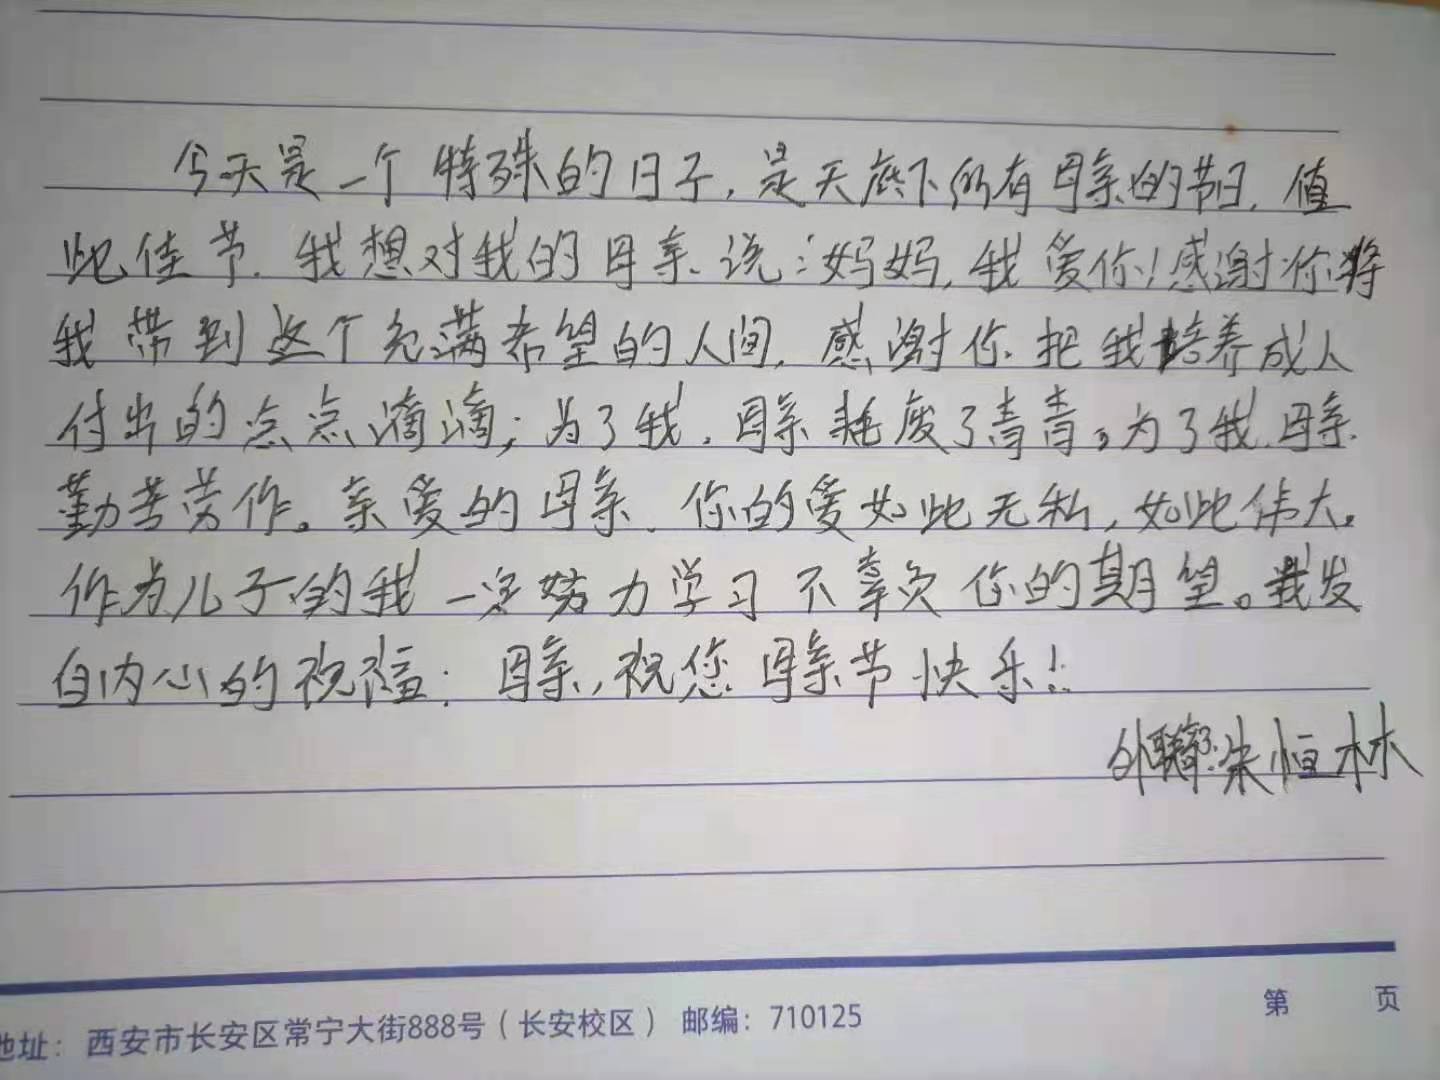 今天是一个特殊的日子，是天底下所有母亲的节日，值
此佳节，我想对我的母亲说：妈妈，我爱你！感谢你将
我带到这个充满希望的人间，感谢你把我培养成人
付出的点点滴滴；为了我，母亲耗废了青青，为了我，母亲
勤苦劳作。亲爱的母亲，你的爱如此无私，如此伟大。
作为儿子的我一定努力学习不辜负你的期望。我发
自内心的祝福：母亲，祝您母亲节快乐！
外联部：朱恒林
地址：西安市长安区常宁大街888号（长安校区） 邮编：710125
第 页